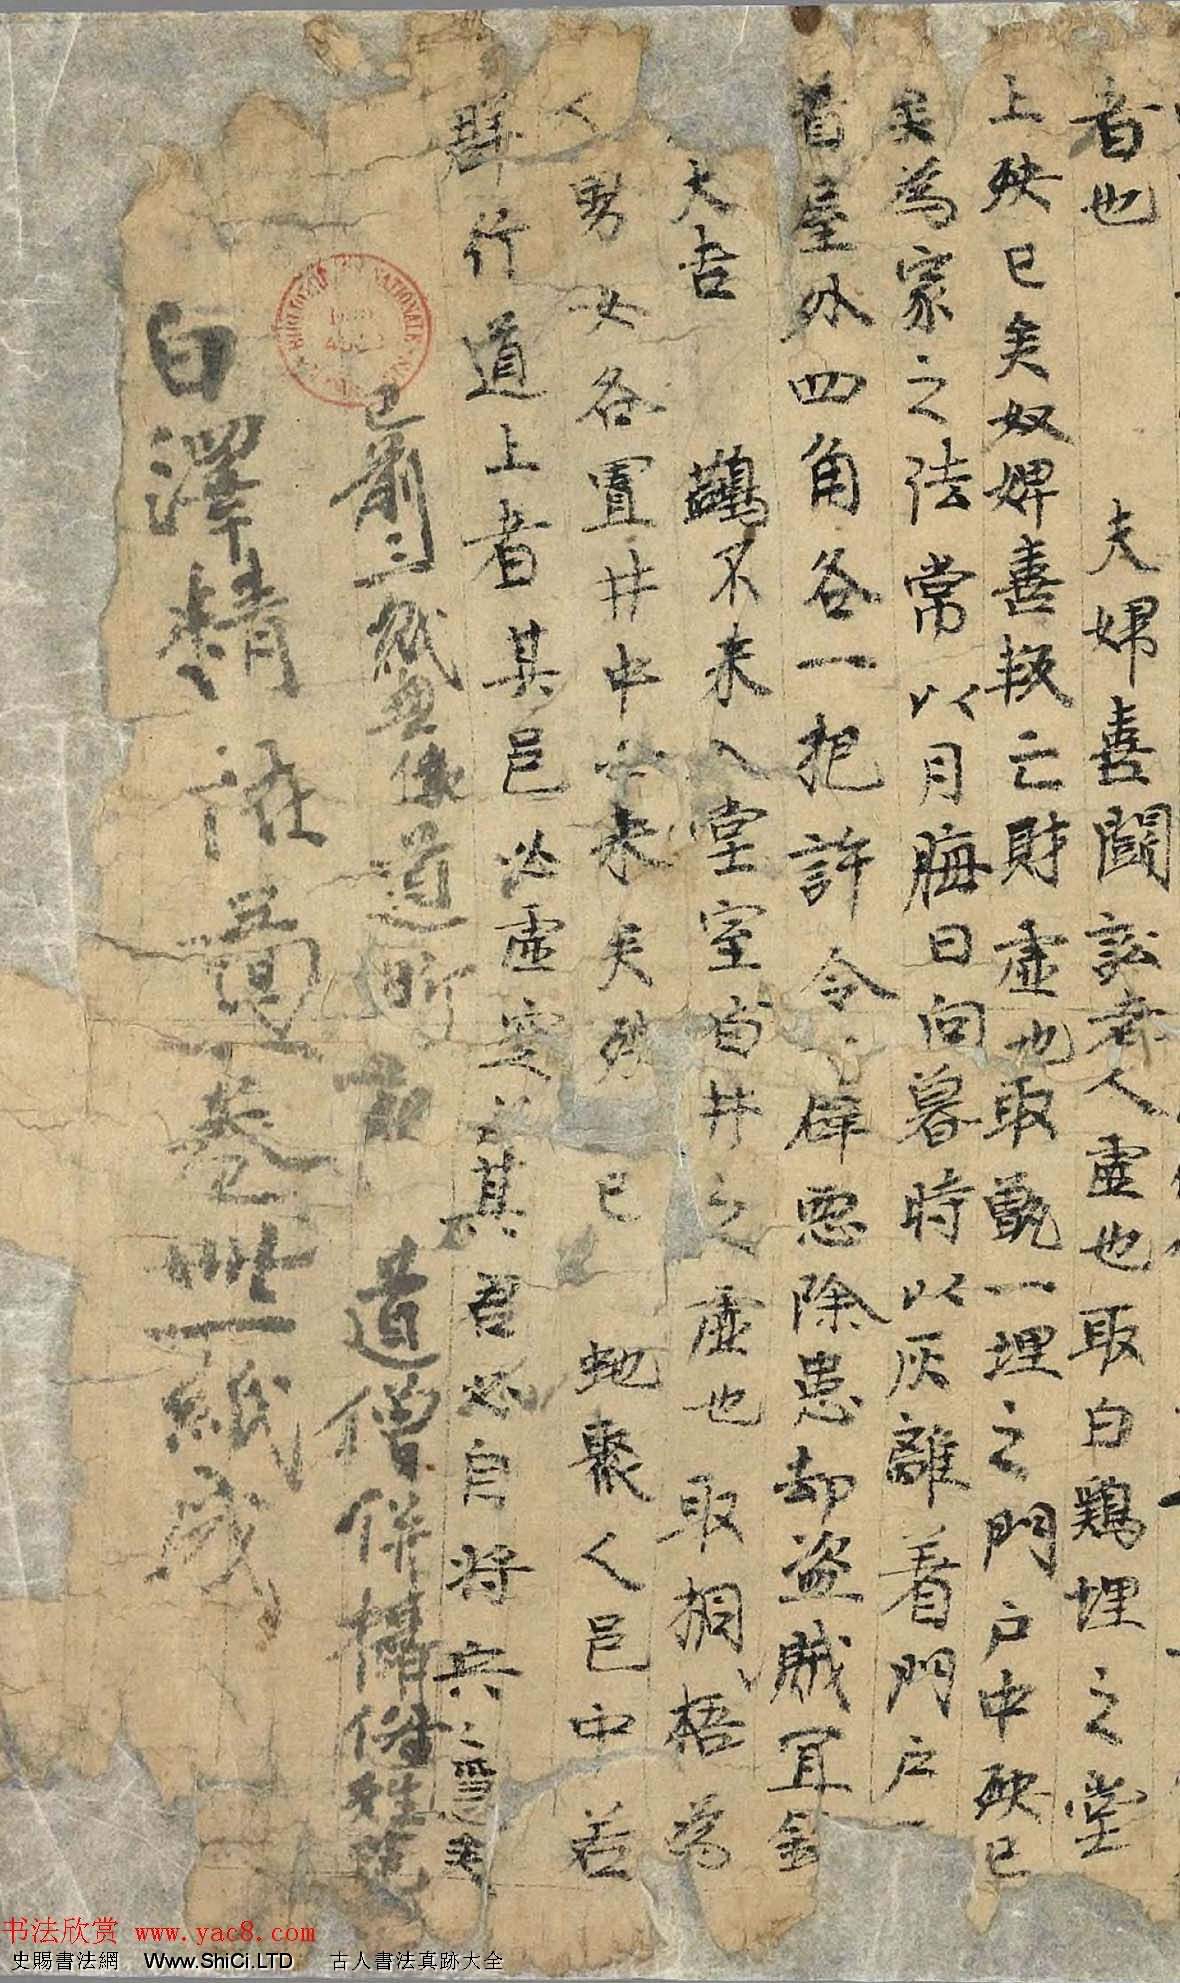 者也　夫婦喜鬪訟老人虛也取白鷄埋之堂
上殃已矣奴婢善叛亡財虛也取甑一埋之門戶中殃已
矣為家之法常以月晦日向暮時以灰離着門戶
着屋外四角各一把許令辟惡除患却盜賊宜
大吉　不來入堂室者井之虛也取桐梧為
男女各置井中必來矣殃已　虵聚人邑中若
群行道上者其邑必虛空其君必自將兵
已前三紙無像道昕記　道僧併攝俗姓
白澤精怪圖一卷卌一紙成
BIBLIOTHÈQUE NATIONALE
书法欣赏 www.yac8.com
史賜書法網 Www.ShiCi.LTD 古人書法真跡大全